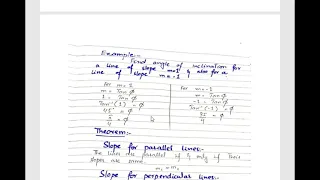 Example:-
Find angle of inclination for
a line of slope m=1 & also for a
line of slope m=-1
For m=1
m = Tan φ
1 = Tan φ
Tan⁻¹(1) = φ
45° = φ
π/4 = φ
For m=-1
-1 = Tan φ
Tan⁻¹(-1) = φ
= φ
Theorem:-
Slope for parallel lines:-
The lines are parallel if & only if their
slopes are same.
m₁ = m₂
Slope for perpendicular lines:-